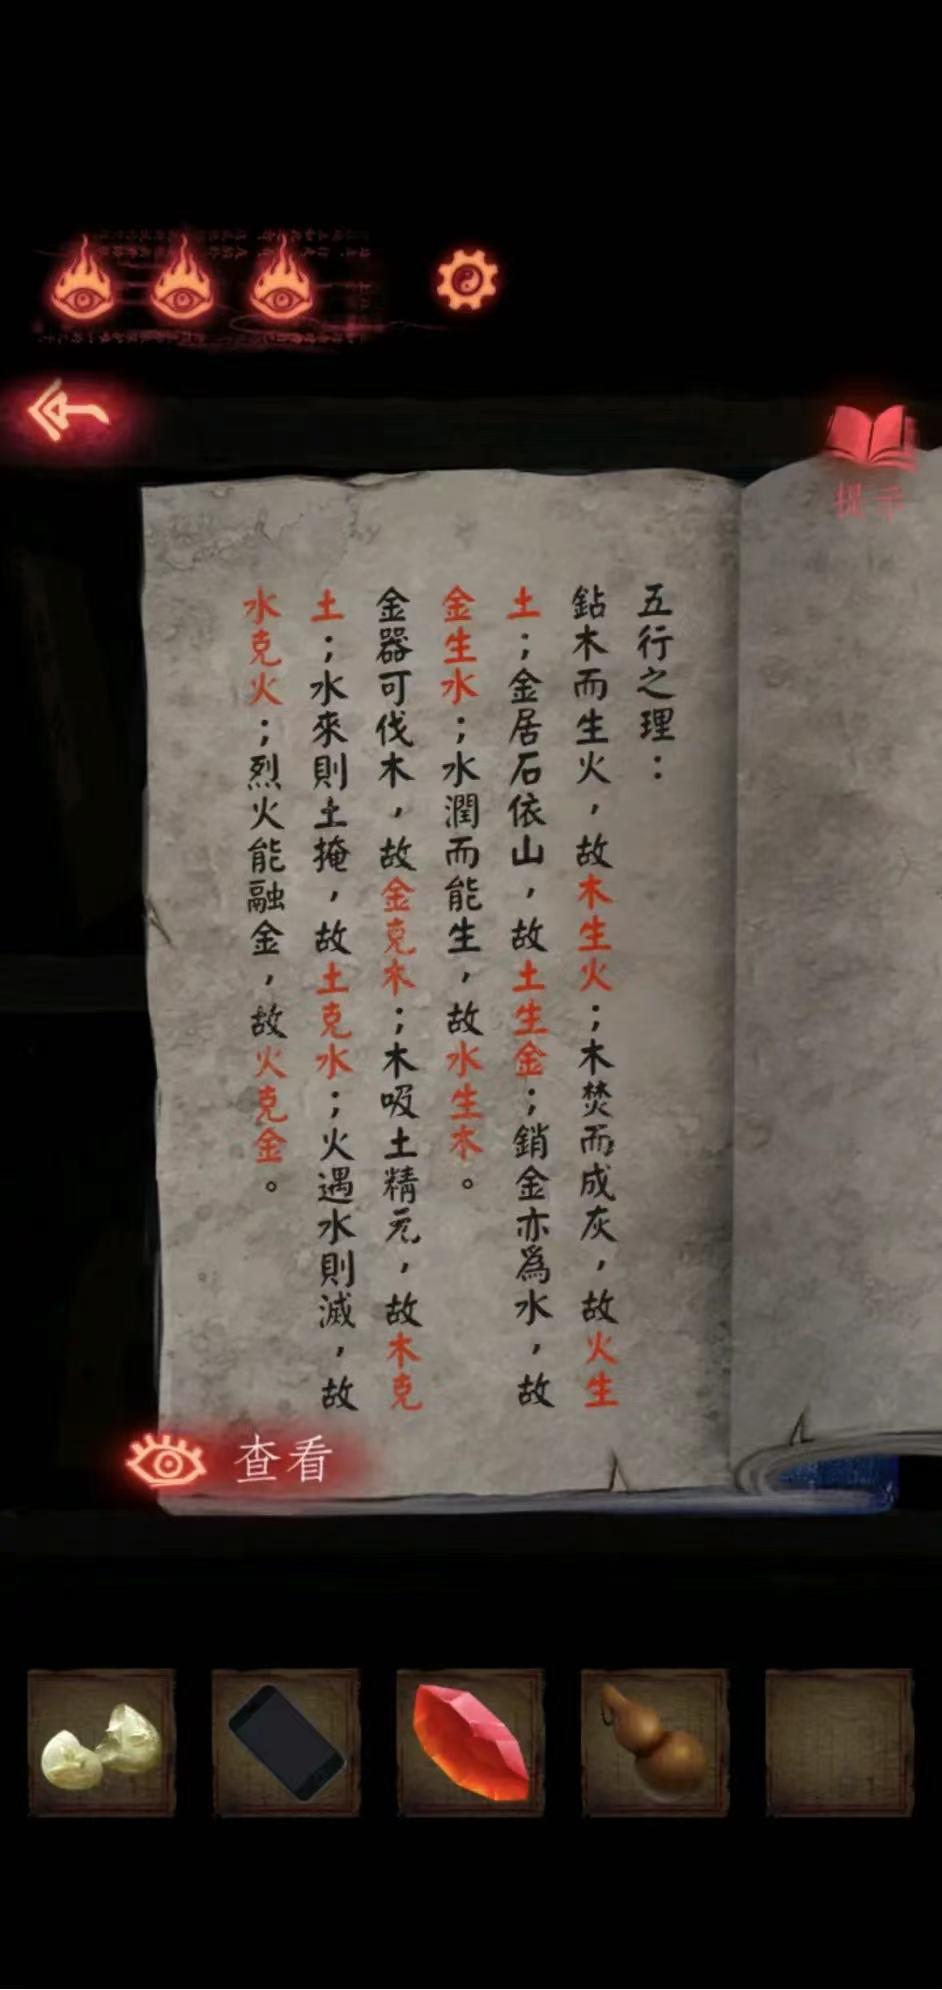 提示
五行之理：
鉆木而生火，故木生火；木焚而成灰，故火生
土；金居石依山，故土生金；銷金亦爲水，故
金生水；水潤而能生，故水生木。
金器可伐木，故金克木；木吸土精元，故木克
土；水來則土掩，故土克水；火遇水則滅，故
水克火；烈火能融金，故火克金。
查看